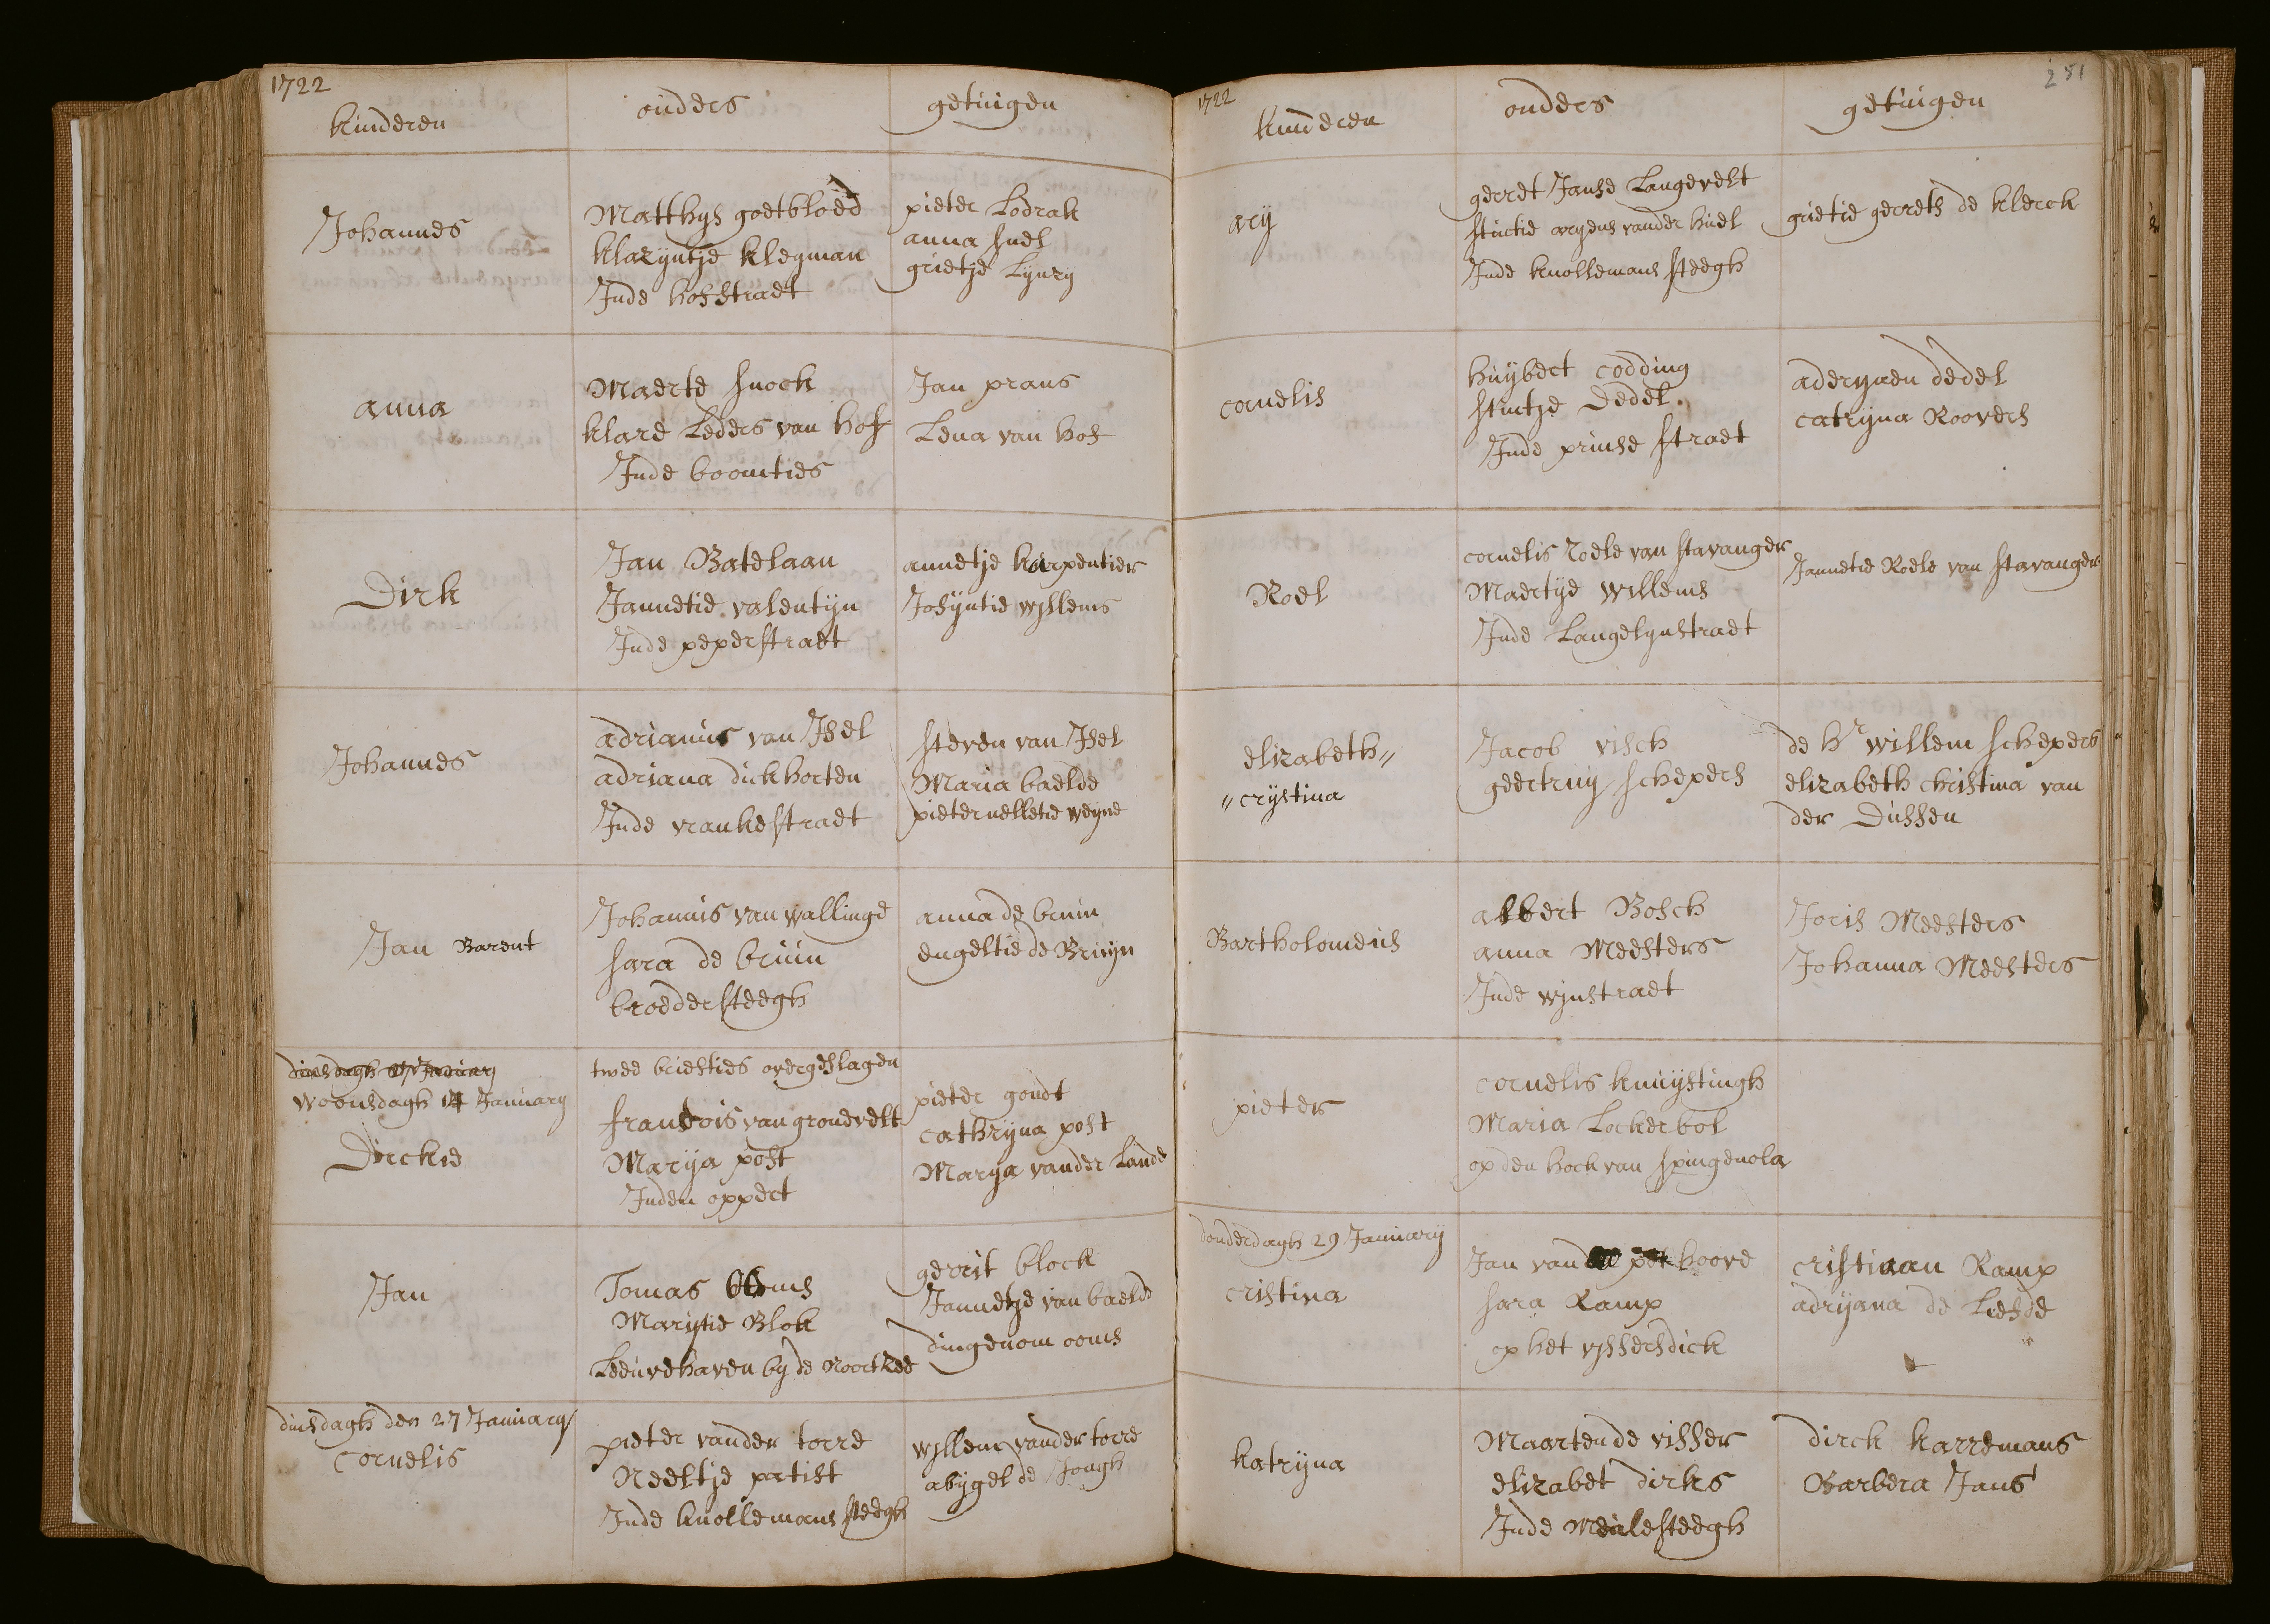 1722
kinderen
ouders
getuigen
Johannes
Matthijs goetbloed
klazyntje klegman
Inde hofstraet
pieter Lodrak
anna snel
grietje Lynry
anna
Maerte snoek
klare Leders van Hof
Inde boomties
Jan prans
Lena van hof
Dirk
Jan Batelaan
Jannetie valentijn
Inde peperstraet
annetje karpentier
Josyntie willems
Johannes
adrianus van Isel
adriana dickhorten
Inde vrankestraet
steven van Isel
Maria baelde
pieternelletie weyne
Jan Barent
Johannis van wallinge
sara de bruin
broedersteegh
anna de bruin
engeltie de Bruijn
dinsdagh 27 January
woonsdagh 14 January
Dirckie
twee briefties overgeslagen
franSois van gronevelt
Marija post
Inden oppert
pieter goudt
cathryna post
Marya vander Lande
Jan
Tomas ooms
Marijtie Blok
Leeuvehaven bij de Noortzee
gerrit block
Jannetje van baelde
dingenom ooms
dinsdagh den 27 January
Cornelis
pieter vander torre
Neeltje patist
Inde knollemans steegh
willem vander torre
abijgel de Jongh
1722
251
kinderen
ouders
getuigen
arij
gerret Janse Langevelt
stintie aryens vander hiel
Inde knollemans steegh
grietie gerrets de klerck
cornelis
huijbert codding
stintje Dedel.
Inde prinse straet
aderyaen dedel
catryna Roovers
Roel
cornelis Roele van stavanger
Maertje willems
Inde Langelynstraet
Jannetie Roele van stavanger
elizabeth〃
〃crijstina
Jacob visch
geertruy schepers
de Hr willem schepers
elizabeth christina van
der Dussen
Bartholomeus
albert Bosch
anna Meesters
Inde wynstraet
Joris Meesters
Johanna Meesters
pieter
cornelis knuijstingh
Maria Lockerbol
op den hoek van spingenola
donderdagh 29 January
cristina
Jan van hoove
sara Kamp
op het vissersdick
cristiaan Kamp
adryana de Liefde
katryna
Maarten de visser
elizabet dirks
Inde Meulesteegh
dirck karremans
Barbera Jans